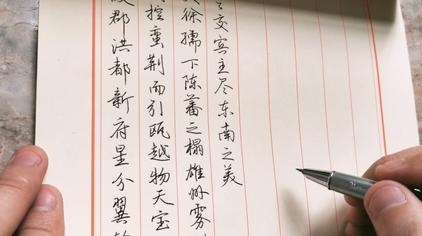 交宾主尽东南之美
徐孺下陈蕃之榻雄州雾
控蛮荆而引瓯越物天宝
郡洪都新府星分翼